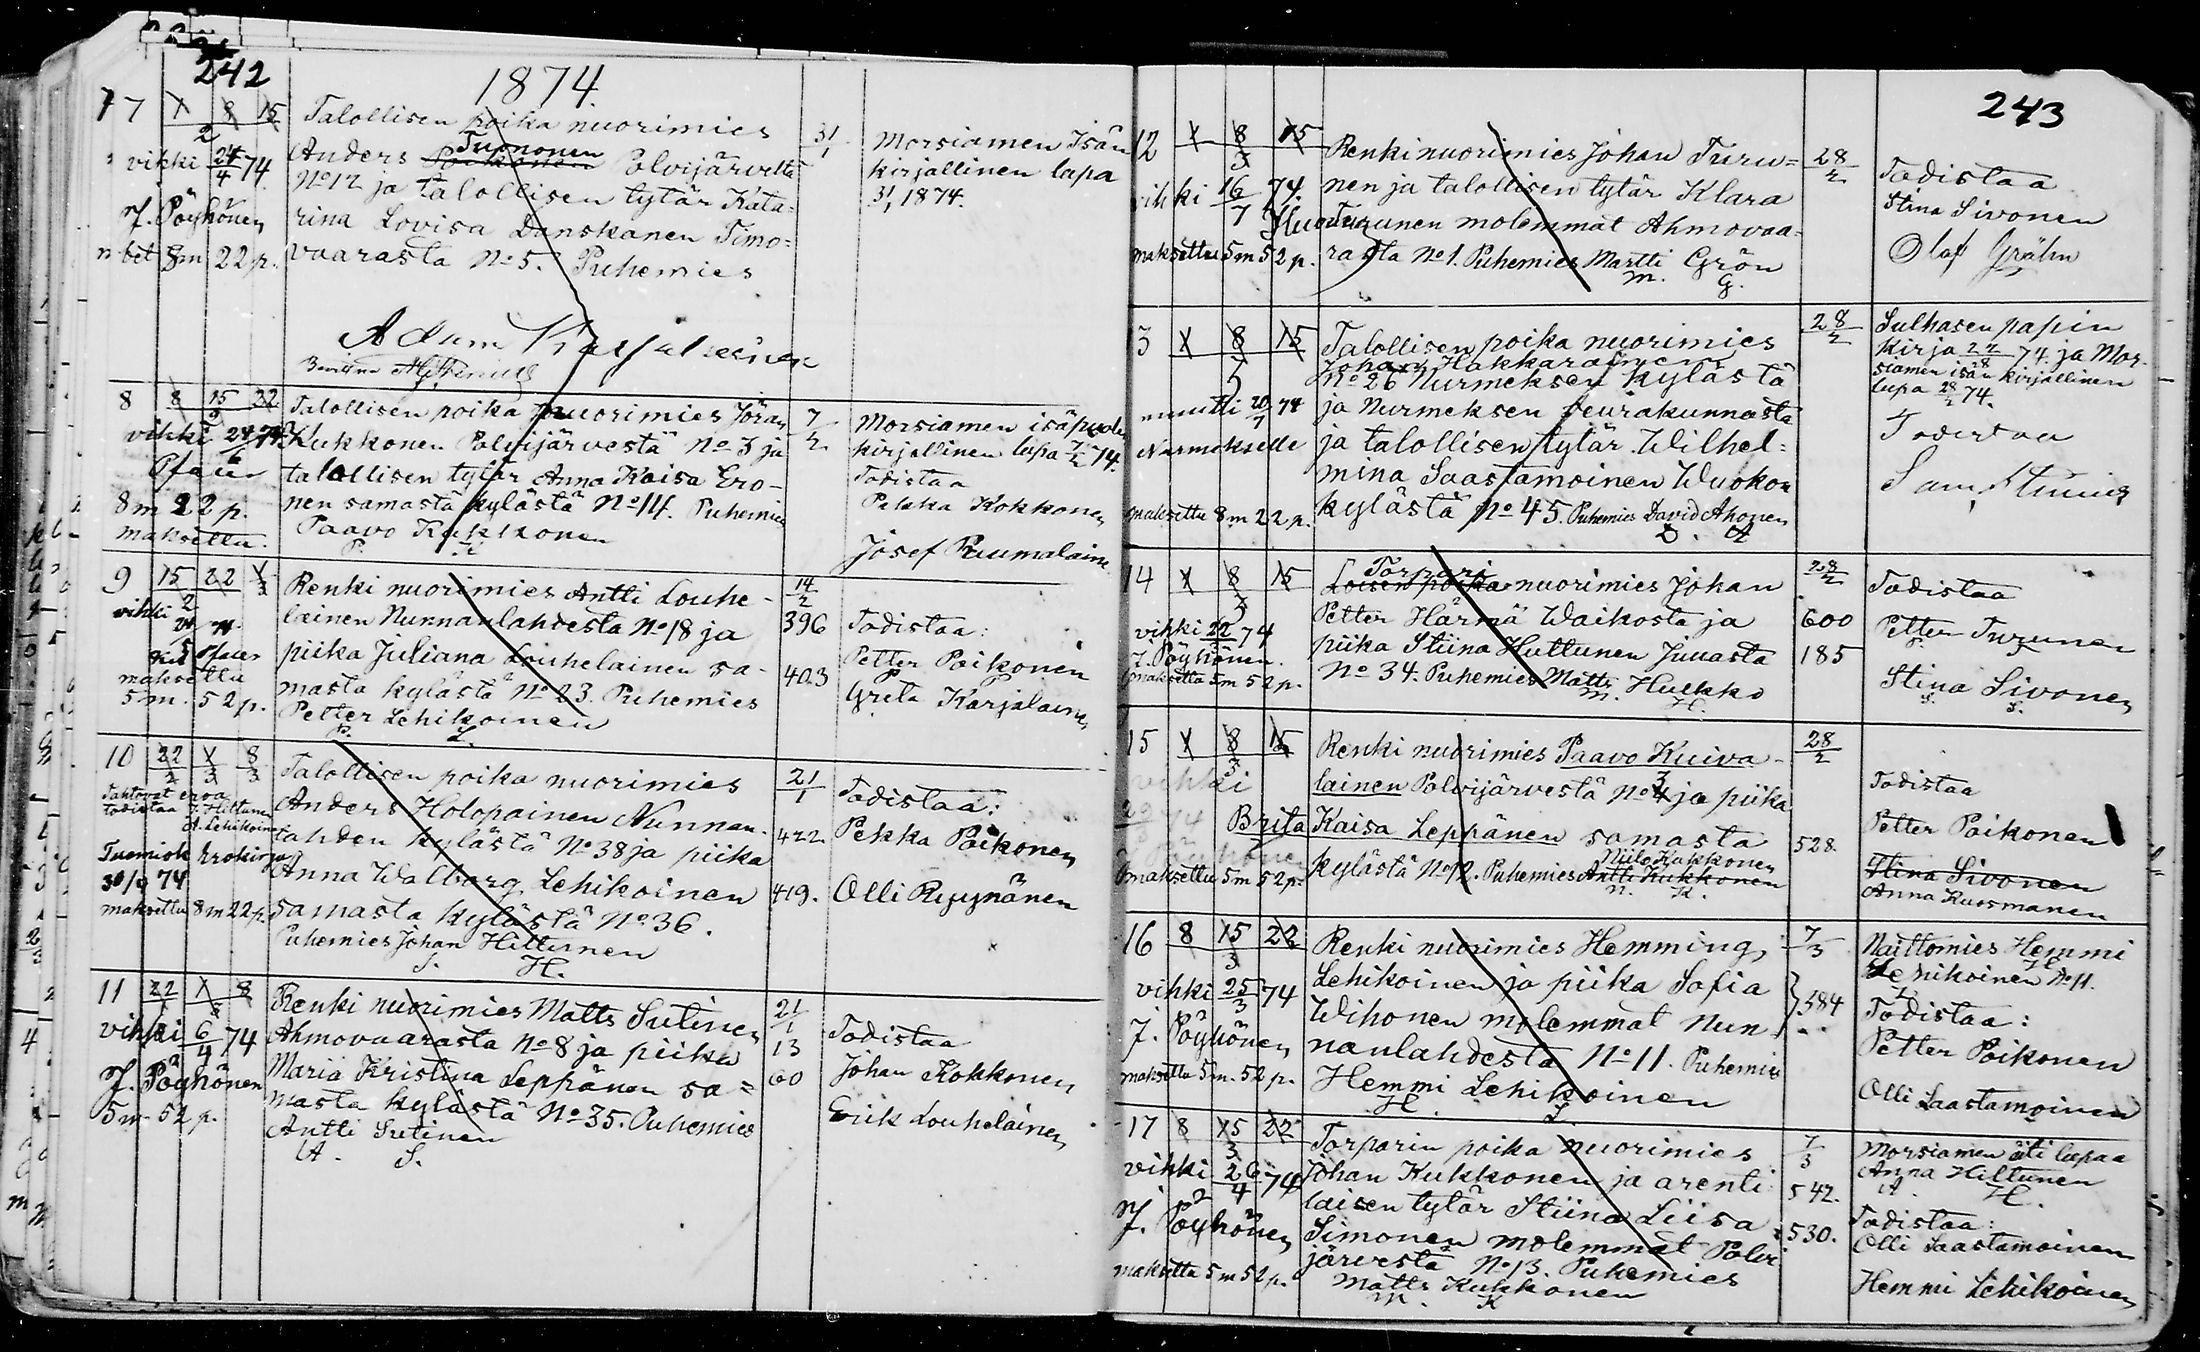 242
1874.
7 1 8 15
2
vikki 24/4 74
J. Pöyhönen
bet 8m 22 p.
Talollisen poika nuorimies
Tuononen
Anders Polvijärveltä
No 12 ja talollisen tytär Kata=
rina Lovisa Danskanen Timo=
vaarasta No 5. Puhemies
Adam Karjalainen
31/1
Morsiamen Isän
kirjallinen lupa
31/1 1874.
8 8 15 22
2
vikki 24/4 74
8m 22 p.
maksettu.
Talollisen poika nuorimies Jöran
Kukkonen Polvijärvestä No 3 ja
talollisen tytär Anna Kaisa Ero-
nen samasta kylästä No 14. Puhemies
Paavo Kukkonen
P. K.
7/2
Morsiamen isäpuolen
kirjallinen lupa 7/2 74.
Todistaa
Pekka Kokkonen
Josef Ruumalainen
9 15 22 1/3
2
vihki
maksettu
5m. 52 p.
Renki nuorimies Antti Louhe-
lainen Nunnanlahdesta No 18 ja
piika Juliana Louhelainen sa-
masta kylästä No 23. Puhemies
Petter Lehikoinen
P. L.
14/2
396
403
Todistaa:
Petter Poikonen
Greta Karjalainen
10 22/2 1/3 8/3
Tahtovat erota
todistaa J. Hiltunen
A. Lehikoinen
Tuomiok Erokirja
30/9 74
maksettu 8m 22 p.
Talollisen poika nuorimies
Anders Holopainen Nunnan-
lahden kylästä No 38 ja piika
Anna Walborg Lehikoinen
samasta kylästä No 36.
Puhemies Johan Hiltunen
J. H.
21/1
422
419.
Todistaa:
Pekka Poikonen
Olli Ryynänen
11 22 1 8
vihki 6/4 74
J. Pöyhönen
5m 52 p.
Renki nuorimies Matts Sutinen
Ahmovaarasta No 8 ja piika
Maria Kristina Leppänen sa=
masta kylästä No 35. Puhemies
Antti Sutinen
A. S.
21/1
13
60
Todistaa
Johan Kokkonen
Erik Louhelainen
243
12 1 8 15
3
vihki 16/7 74.
maksettu 5m 52 p.
Renki nuorimies Johan Turu=
nen ja talollisen tytär Klara
Turunen molemmat Ahmovaa=
rasta No 1. Puhemies Martti Grön
M. G.
28/2
Todistaa
Stina Sivonen
Olof Grähn
3 1 8 15
3
muutti 20/7 74
Nurmekselle
maksettu 8m 22 p.
Talollisen poika nuorimies
Johan Hakkarainen
No 26 Nurmeksen kylästä
ja Nurmeksen seurakunnasta
ja talollisen tytär Wilhel=
mina Saastamoinen Wuokon
kylästä No 45. Puhemies David Ahonen
D. A
28/2
Sulhasen papin
kirja 22/2 74 ja Mor-
siamen isän kirjallinen
lupa 28/2 74.
Todistaa
14 1 8 15
3
vihki 22/3 74
J. Pöyhönen.
maksettu 5m 52 p.
Torpari
Loisen poika nuorimies Johan
Petter Härmä Waikosta ja
piika Stiina Huttunen Juuasta
No 34. Puhemies Matts Hukko
M. H.
28/2
600
185
Todistaa
Petter Turunen
P. T.
Stina Sivonen
S. S.
15 1 8 15
3
vihki
22/3 74
maksettu 5m 52 p.
Renki nuorimies Paavo Kuiva-
lainen Polvijärvestä No 3 ja piika
Brita Kaisa Leppänen samasta
Niilo Kukkonen
kylästä No 12. Puhemies Antti Kukkonen
N. K.
28/2
528.
Todistaa
Petter Poikonen
Stina Sivonen
Anna Kuosmanen
16 8 15 22
3
vihki 25/3 74
J. Pöyhönen
maksettu 5m. 52 p.
Renki nuorimies Hemming
Lehikoinen ja piika Sofia
Wihonen molemmat Nun-
nanlahdesta No 11. Puhemies
Hemmi Lehikoinen
H. L.
7/3
584
Naittomies Hemmi
Lehikoinen No 11.
Todistaa:
Petter Poikonen
Olli Saastamoinen
17 8 15 22
3
vihki 26/4 74
J. Pöyhönen
maksettu 5m 52 p.
Torparin poika nuorimies
Johan Kukkonen ja arenti-
laisen tytär Stiina Liisa
Simonen molemmat Polvi
järvestä No 13. Puhemies
Matts Kukkonen
M. K
7/3
542.
530.
Morsiamen äiti lupaa
Anna Hiltunen
A. H.
Todistaa:
Olli Saastamoinen
Hemmi Lehikoinen